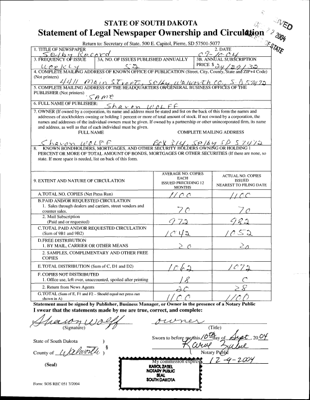 STATE OF SOUTH DAKOTA
Statement of Legal Newspaper Ownership and Circulation
Return to: Secretary of State, 500 E. Capitol, Pierre, SD 57501-5077
1. TITLE OF NEWSPAPER
Selby Record
2. DATE
09-10-04
3. FREQUENCY OF ISSUE
Weekly
3A. NO. OF ISSUES PUBLISHED ANNUALLY
52
3B. ANNUAL SUBSCRIPTION
PRICE $
4. COMPLETE MAILING ADDRESS OF KNOWN OFFICE OF PUBLICATION (Street, City, County, State and ZIP+4 Code)
(Not printers)
4411 Main Street, Selby, Walworth Co., SD 57472
5. COMPLETE MAILING ADDRESS OF THE HEADQUARTERS OR GENERAL BUSINESS OFFICES OF THE
PUBLISHER (Not printers)
SAME
6. FULL NAME OF PUBLISHER:
Sharon WOLFF
7. OWNER (If owned by a corporation, its name and address must be stated and also on the back of this form the names and
addresses of stockholders owning or holding 1 percent or more of total amount of stock. If not owned by a corporation, the
names and addresses of the individual owners must be given. If owned by a partnership or other unincorporated firm, its name
and address, as well as that of each individual must be given.
FULL NAME
COMPLETE MAILING ADDRESS
Sharon WOLFF
Selby SD 57472
8. KNOWN BONDHOLDERS, MORTGAGES, AND OTHER SECURITY HOLDERS OWNING OR HOLDING 1
PERCENT OR MORE OF TOTAL AMOUNT OF BONDS, MORTGAGES OR OTHER SECURITIES (If there are none, so
state. If more space is needed, list on back of this form.
9. EXTENT AND NATURE OF CIRCULATION
AVERAGE NO. COPIES
EACH
ISSUED PRECEDING 12
MONTHS
ACTUAL NO. COPIES
ISSUED
NEAREST TO FILING DATE
A. TOTAL NO. COPIES (Net Press Run)
1100
1100
B. PAID AND/OR REQUESTED CIRCULATION
1. Sales through dealers and carriers, street vendors and
counter sales.
70
70
2. Mail Subscription
(Paid and or requested)
972
982
C. TOTAL PAID AND/OR REQUESTED CIRCULATION
(Sum of 9B1 and 9B2)
1042
1052
D. FREE DISTRIBUTION
1. BY MAIL, CARRIER OR OTHER MEANS
20
20
2. SAMPLES, COMPLIMENTARY AND OTHER FREE
COPIES
E. TOTAL DISTRIBUTION (Sum of C, D1 and D2)
1062
1072
F. COPIES NOT DISTRIBUTED
1. Office use, left over, unaccounted, spoiled after printing
18
2. Return from News Agents
20
28
G. TOTAL (Sum of E, F1 and F2 - Should equal net press run
shown in A)
1100
1100
Statement must be signed by Publisher, Business Manager, or Owner in the presence of a Notary Public
I swear that the statements made by me are true, correct, and complete:
Sharon Wolff
owner
(Signature)
(Title)
State of South Dakota )
Sworn to before me this 10th day of Sept 2004
County of Walworth )
Karol Zabel
Notary Public
(Seal)
My commission expires 12-9-2004
KAROL ZABEL
NOTARY PUBLIC
SEAL
SOUTH DAKOTA